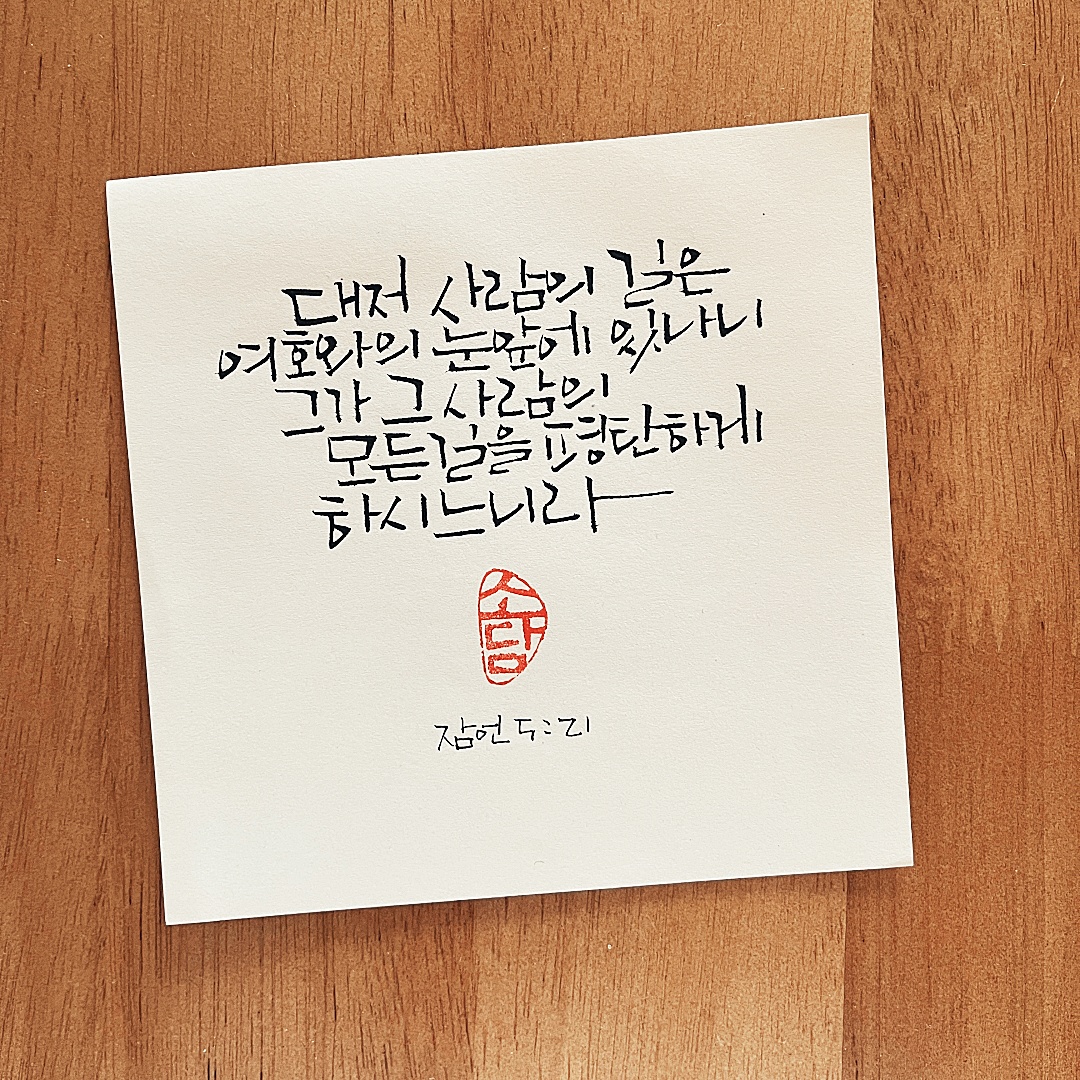 대저 사람의 길은
여호와의 눈앞에 있나니
그가 그 사람의
모든길을 평탄하게
하시느니라
소담
잠언 5:21